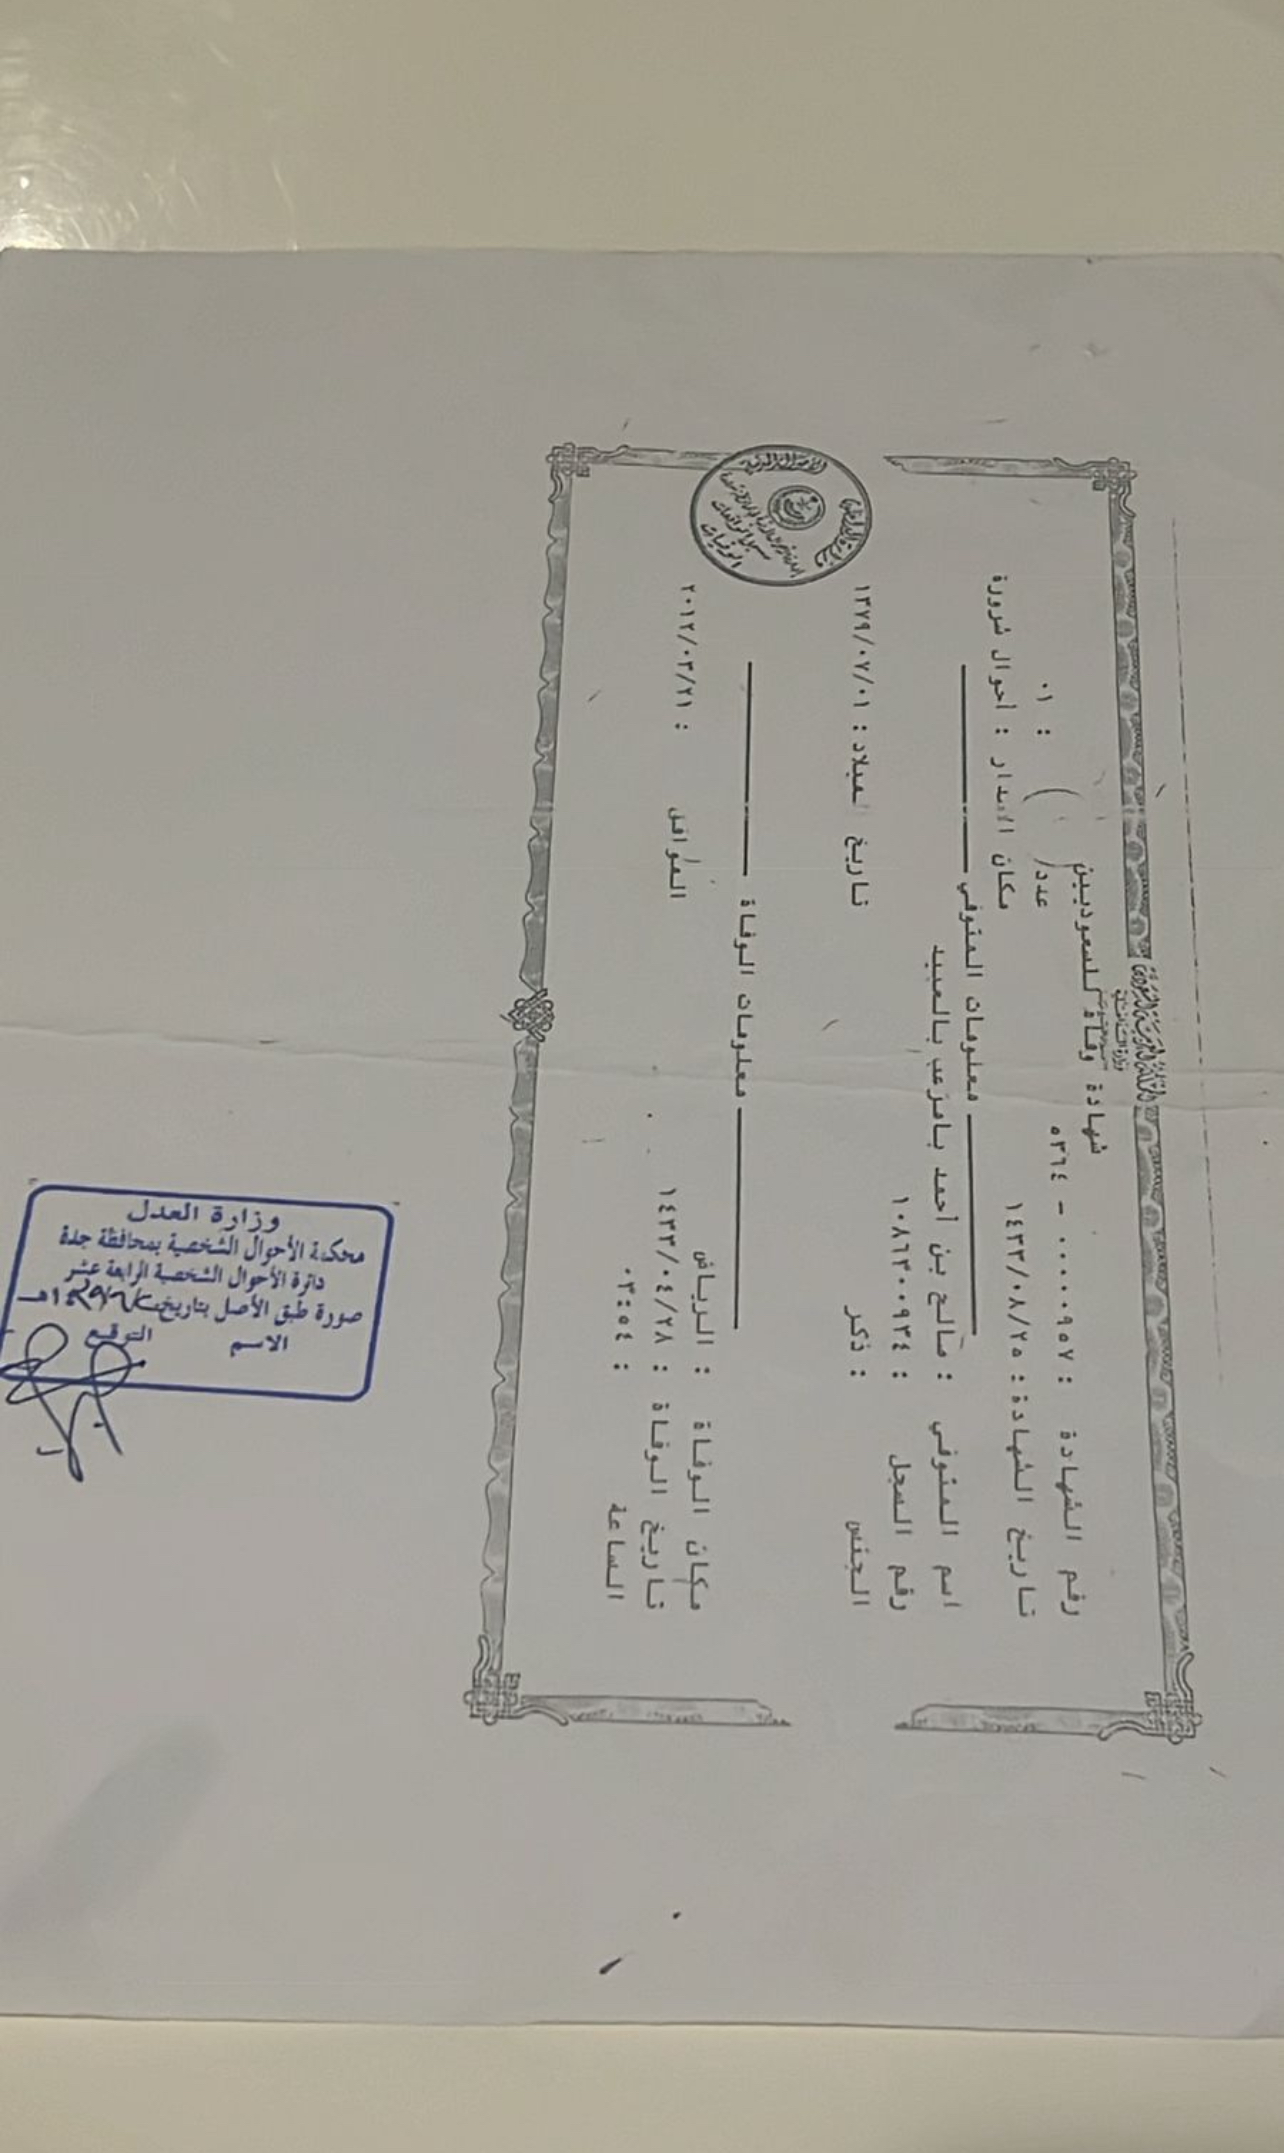 المملكة العربية السعودية
وزارة الداخلية
شهادة وفاة للسعوديين
رقم الشهادة : ٠٠٠٠٠٩٥٧ - ٥٣٦٤ عدد/ ( ) : ٠١
تاريخ الشهادة : ١٤٣٣/٠٨/٢٥ مكان الاصدار : أحوال شرورة
معلومات المتوفي
اسم المتوفي : صالح بن أحمد بامزعب بالعبيد
رقم السجل : ١٠٨٦٣٠٠٩٣٤
الجنس : ذكر تاريخ الميلاد : ١٣٧٩/٠٧/٠١
معلومات الوفاة
مكان الوفاة : الرياض
تاريخ الوفاة : ١٤٣٣/٠٤/٢٨ الموافق : ٢٠١٢/٠٣/٢١
الساعة : ٠٣:٥٤
وزارة الداخلية
الأحوال المدنية
الوفيات
وزارة العدل
محكمة الأحوال الشخصية بمحافظة جدة
دائرة الأحوال الشخصية الرابعة عشر
صورة طبق الأصل بتاريخ ١٤هـ
الاسم التوقيع